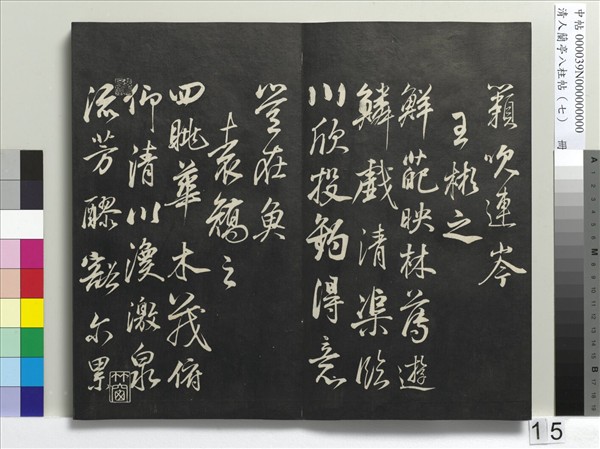 中帖 000039N000000000 冊
清人蘭亭八柱帖（七）
籟吹連岑
王彬之
鮮葩映林薄遊
鱗戲清渠臨
川欣投釣得意
豈在魚
袁矯之
四眺華木茂俯
仰清川渙激泉
流芳醪豁尔累
15